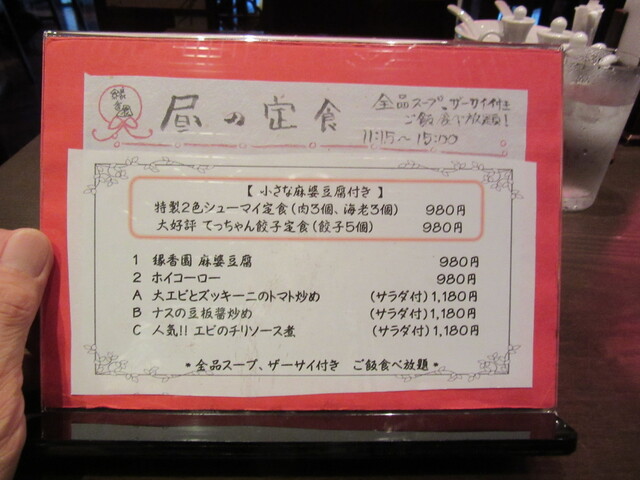 縁香園
昼の定食
全品スープ、ザーサイ付き
ご飯食べ放題!
11:15〜15:00
【 小さな麻婆豆腐付き 】
特製2色シューマイ定食(肉3個、海老3個) 980円
大好評 てっちゃん餃子定食(餃子5個) 980円
1 縁香園 麻婆豆腐 980円
2 ホイコーロー 980円
A 大エビとズッキーニのトマト炒め (サラダ付)1,180円
B ナスの豆板醤炒め (サラダ付)1,180円
C 人気!! エビのチリソース煮 (サラダ付)1,180円
*全品スープ、ザーサイ付き ご飯食べ放題*